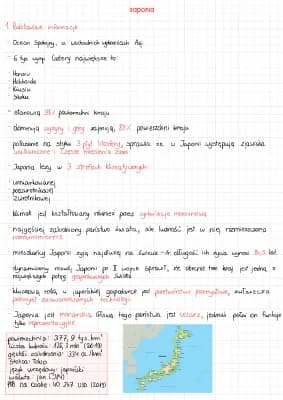 Japonia
1. Podstawowe informacje
- Ocean Spokojny, u wschodnich wybrzeży Azji
- 6 tys. wysp. Cztery największe to:
- Honsiu
- Hokkaido
- Kiusiu
- Sikoku
- stanowią 98% powierzchni kraju
- dominują wyżyny i góry zajmują, 85% powierzchni kraju
- położenie na styku 3 płyt litosfery, sprawia że w Japonii występują zjawiska
wulkaniczne i częste trzęsienia ziemi
- Japonia leży w 3 strefach klimatycznych:
- umiarkowanej
- podzwrotnikowej
- zwrotnikowej
- klimat jest kształtowany również przez cyrkulację monsunową
- najgęściej zaludniony państwo świata, ale ludność jest w niej rozmieszczona
nierównomiernie
- mieszkańcy Japonii żyją najdłużej na świecie - śr. długość ich życia wynosi 84,5 lat.
- dynamiczny rozwój Japonii po II wojnie sprawił, że obecnie ten kraj jest jedną z
największych potęg gospodarczych świata
- kluczową rolę w japońskiej gospodarce ma przetwórstwo przemysłowe, zwłaszcza
przemysł zaawansowanych technologii
- Japonia jest monarchią. Głową tego państwa jest cesarz, jednak pełni on funkcje
tylko reprezentacyjne
powierzchnia: 377,9 tys. km²
liczba ludności: 126,3 mln (2019)
gęstość zaludnienia: 334 os./km²
stolica: Tokio
język urzędowy: japoński
waluta: jen (JPY)
PKB na osobę: 40 247 USD (2019)